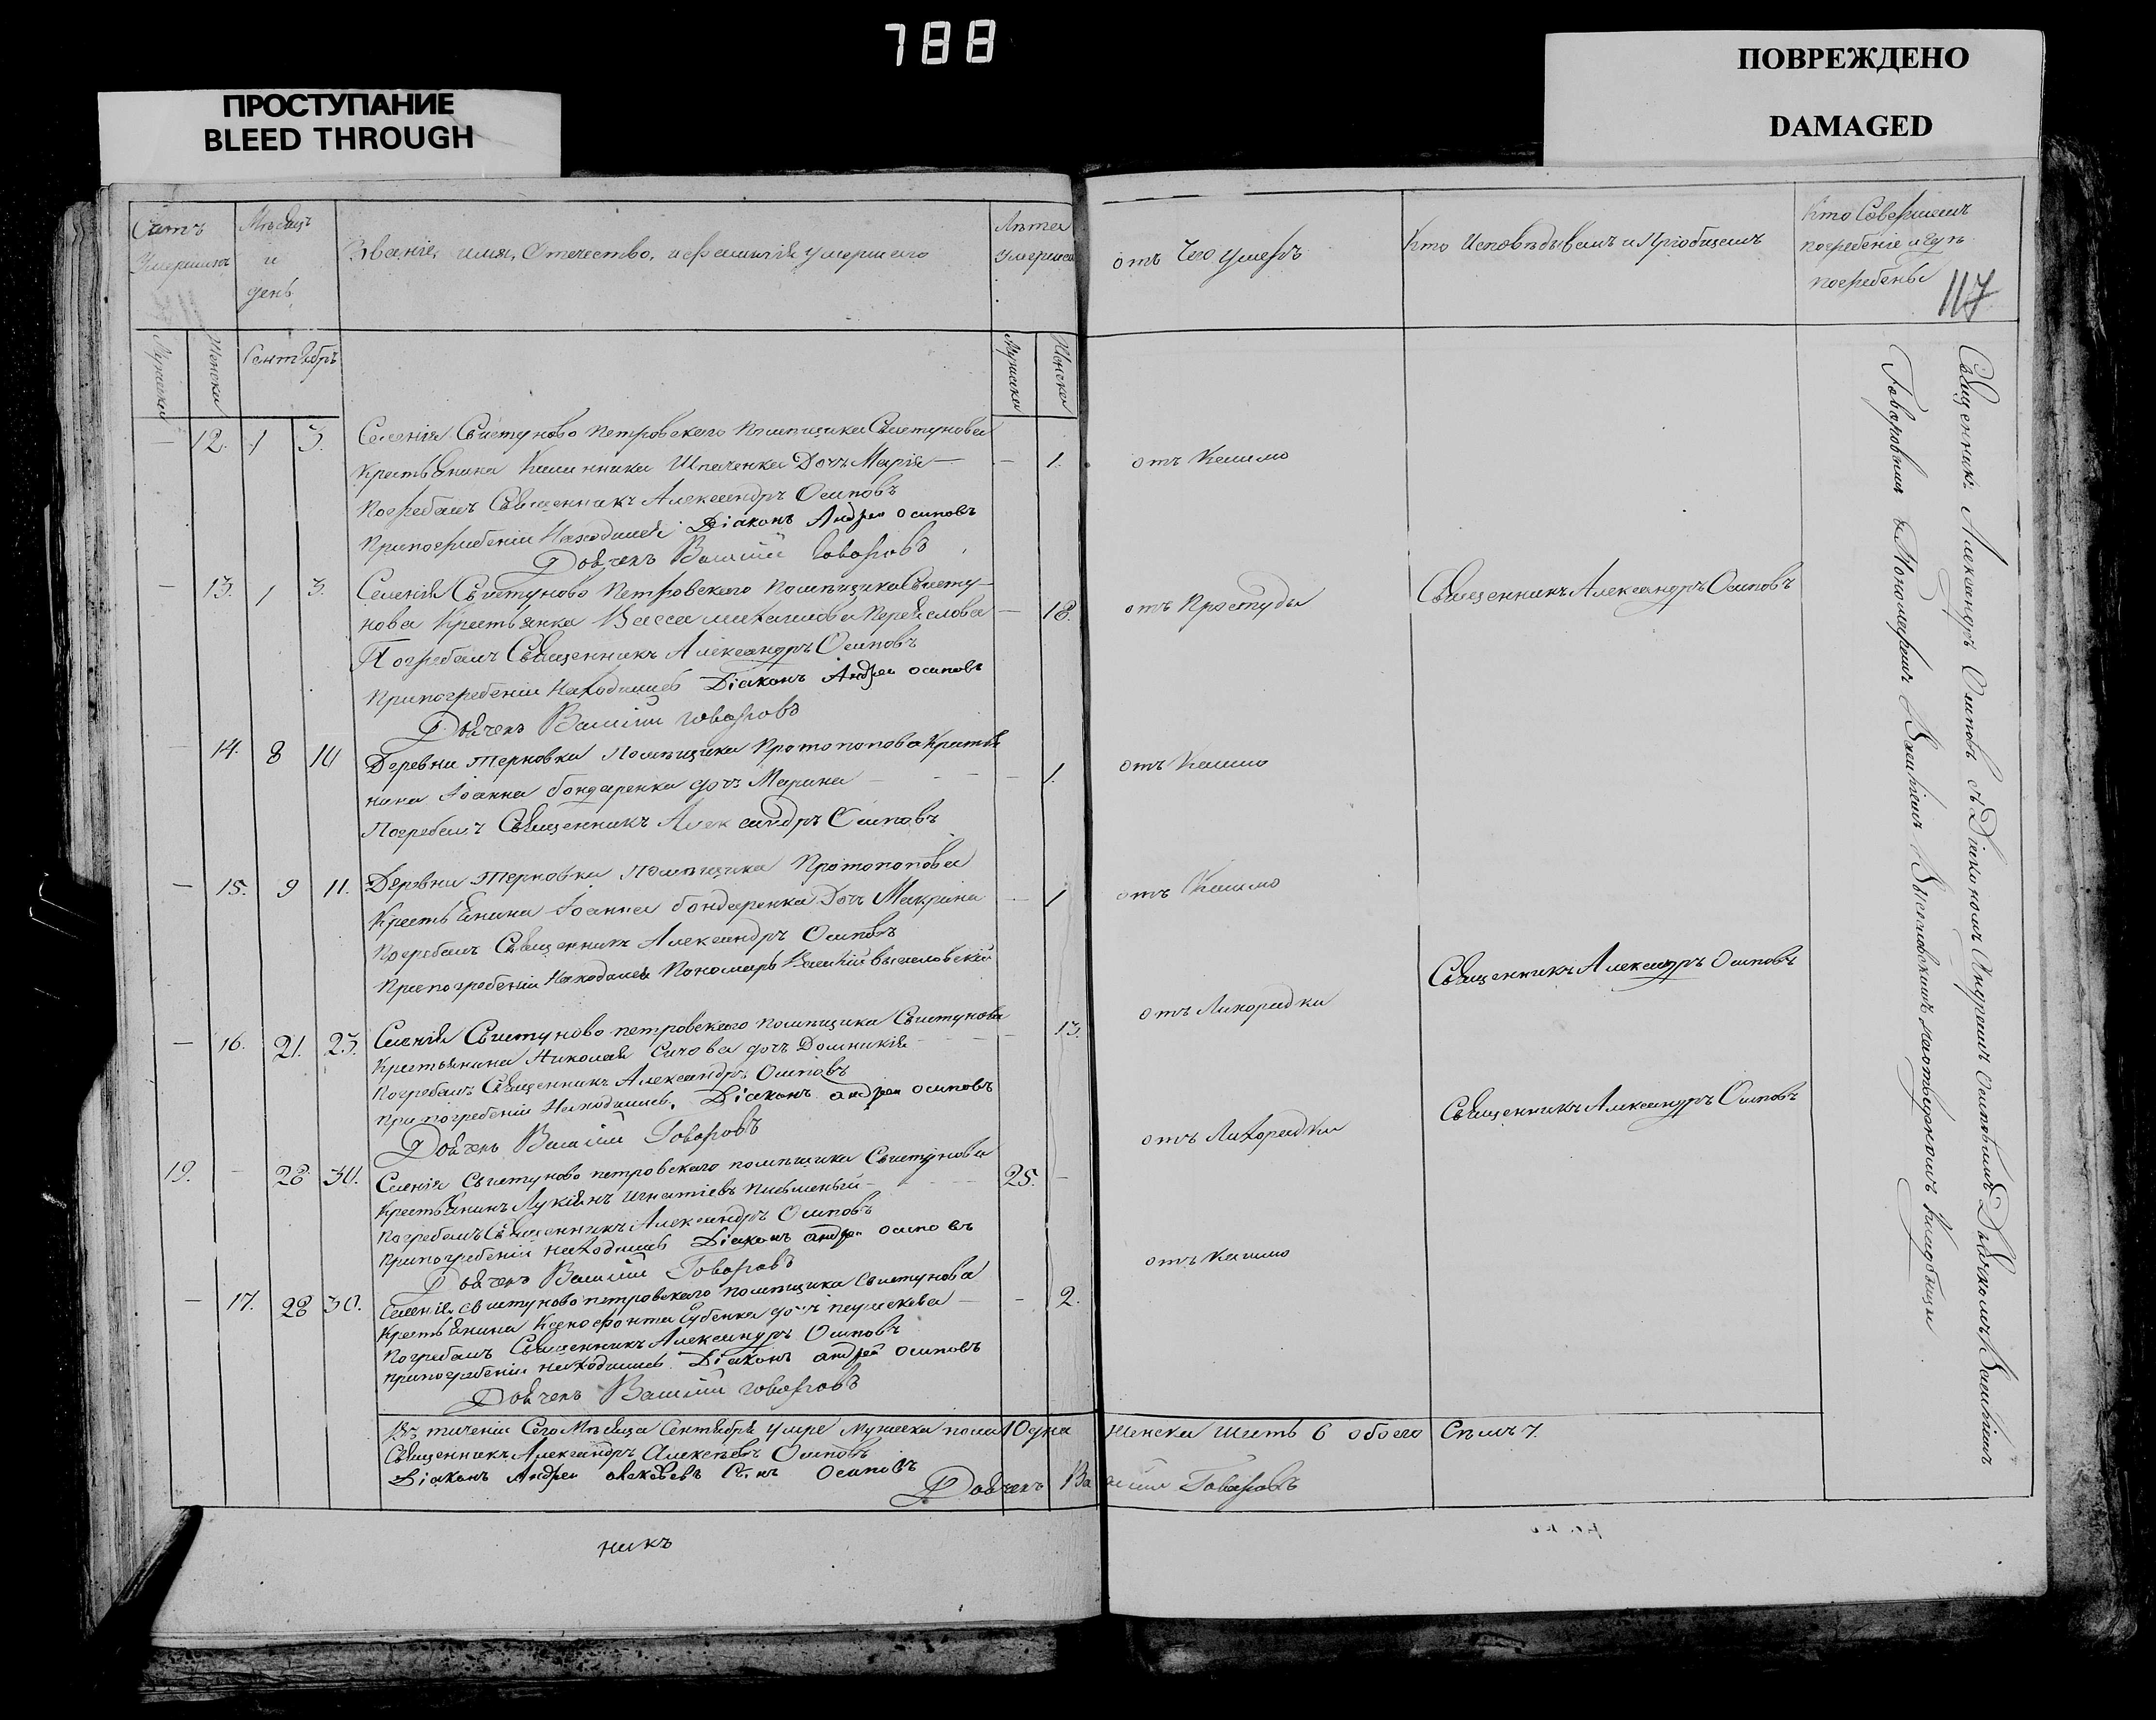 788
ПРОСТУПАНИЕ
BLEED THROUGH
ПОВРЕЖДЕНО
DAMAGED
Счетъ умершихъ
Мѣсяцъ и день
Званіе, имя, отечество, и фамилія умершаго
Лѣта умершаго
отъ чего умеръ
Кто Исповѣдывалъ и Пріобщалъ
Кто Совершалъ погребеніе и гдѣ погребены
117
Мужска
Женска
Сентябрь
Мужска
Женска
— 12. 1 3. Селенія Свистуново Петровскаго Помѣщика Свистунова
Крестьянина Шпаченка Дочь Марія — — 1. отъ Кашлю
Погребалъ Священникъ Александръ Осиповъ
При погребеніи Находился Діаконъ Андрей Осиповъ
Дьячекъ Василій Говоровъ
— 13. 1 3. Селенія Свистуново Петровскаго Помѣщика Свисту-
нова Крестьянка Васса Михайлова — 18. отъ Простуды Священникъ Александръ Осиповъ
Погребалъ Священникъ Александръ Осиповъ
При погребеніи Находились Діаконъ Андрей Осиповъ
Дьячекъ Василій Говоровъ
14. 8 10 Деревни Терновки Помѣщика Протопопова Крестья
нина Іоанна Бондаренка дочь Марина — — 1. отъ Кашлю
Погребалъ Священникъ Александръ Осиповъ
— 15. 9 11. Деревни Терновки Помѣщика Протопопова
Крестьянина Іоанна Бондаренка Дочь Макрина — 1 отъ Кашлю
Погребалъ Священникъ Александръ Осиповъ
При погребеніи Находился Пономарь Василій Высиловскій
— 16. 21. 23. Селенія Свистуново петровскаго помѣщика Свистунова — 13. отъ Лихорадки Священникъ Александръ Осиповъ
Крестьянина Николая Сичова дочь Домникія
Погребалъ Священникъ Александръ Осиповъ
При погребеніи Находились, Діаконъ андрей осиповъ
Дьячекъ Василій Говоровъ
19. — 28 30. Селенія Свистуново петровскаго помѣщика Свистунова 25. — отъ Лихорадки Священникъ Александръ Осиповъ
Крестьянинъ Лукіянъ Игнатіевъ Письменный
Погребалъ Священникъ Александръ Осиповъ
При погребеніи находились Діаконъ андрей осиповъ
Дьячекъ Василій Говоровъ
— 17. 28 30. Селенія свистуново петровскаго помѣщика Свистунова — 2. отъ Кашлю
Крестьянина Ксенофонта Губенка дочь параскева
Погребалъ Священникъ Александръ Осиповъ
При погребеніи находились Діаконъ андрей осиповъ
Дьячекъ Василій говоровъ
Въ теченіи Сего Мѣсяца Сентября умре мужеска пола 1 Одна Женска Шесть 6 обоего Семь 7.
Священникъ Александръ Алексѣевъ Осиповъ
Діаконъ Андрей алексѣевъ Осиповъ
Дьячекъ Василій Говоровъ
никъ
Священникъ Александръ Осиповъ съ Діакономъ Андреемъ Осиповымъ Дьячкомъ Василіемъ
Говоровымъ и Пономаремъ Василіемъ Высиловскимъ, на отведенномъ Кладбищи